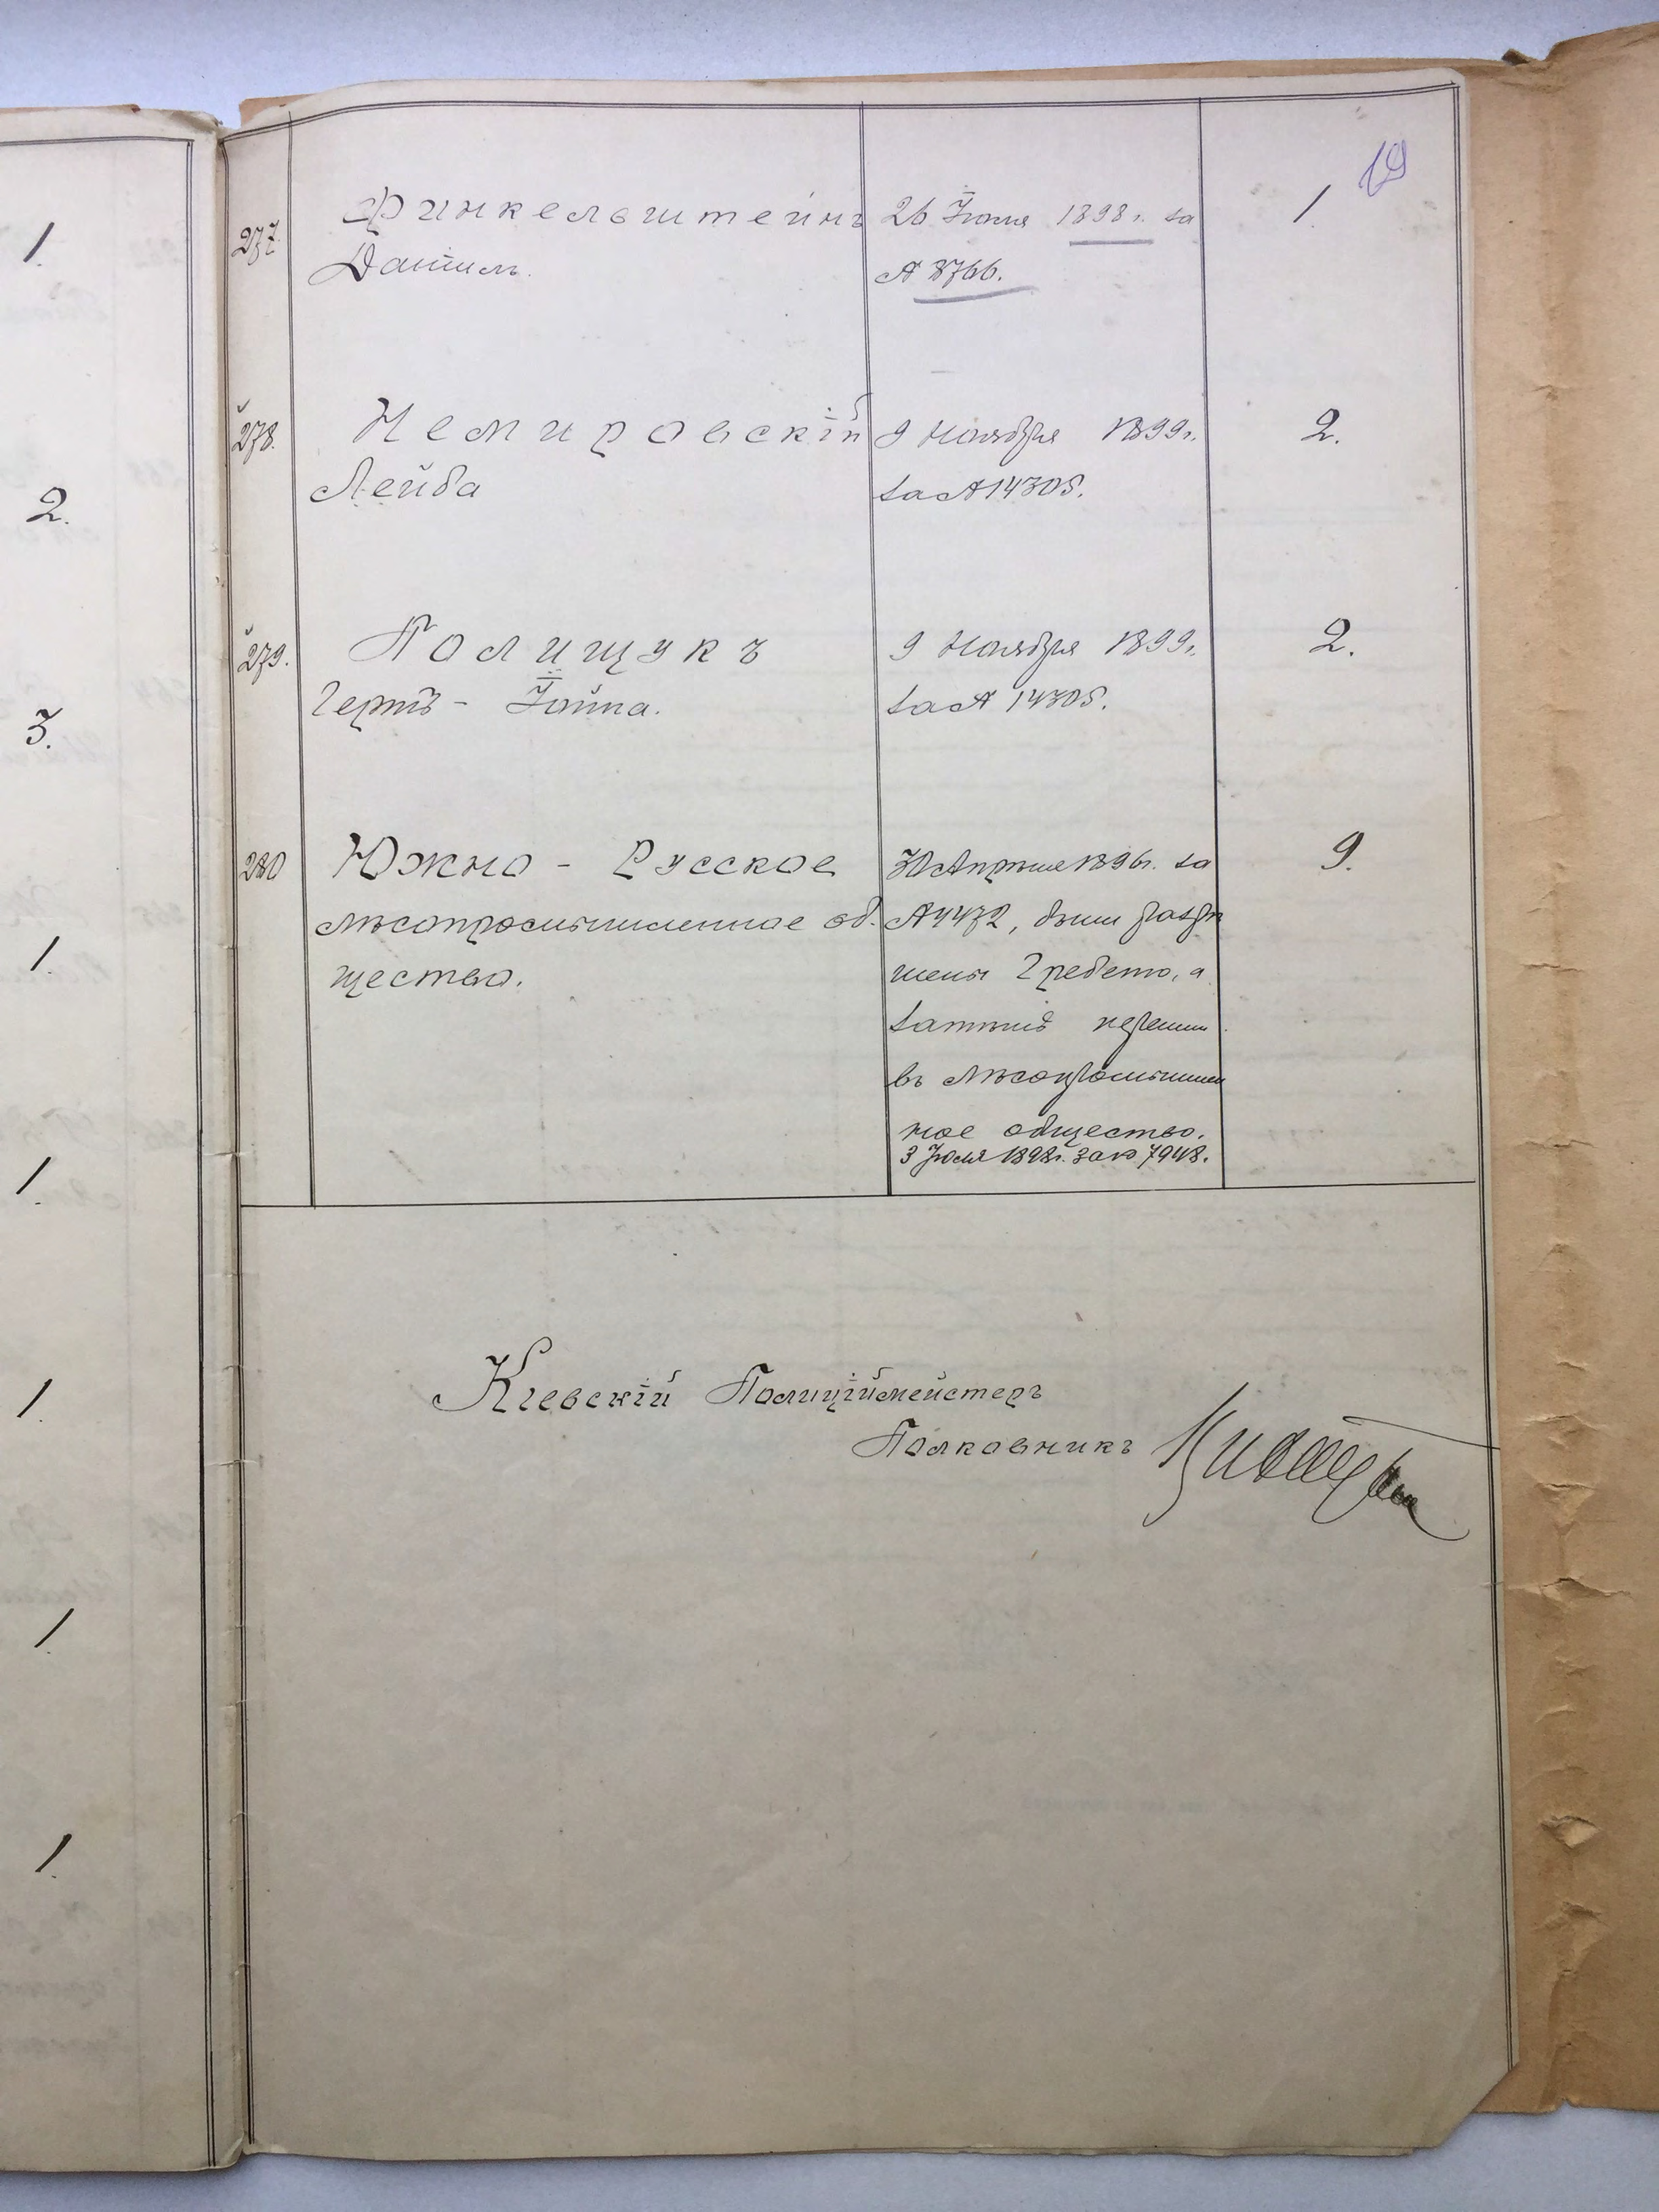 19
1.
2.
3.
1.
1.
1.
1.
1.
277. Финкельштейнъ 26 Іюля 1898 г. за 1.
Даніилъ. № 8766.
278. Немировскій 9 Ноября 1899 г. 2.
Лейба за № 14305.
279. Полищукъ 9 Ноября 1899 г. 2.
Герть - Іойна. за № 14305.
280 Южно - Русское 30 Апрѣля 1896 г. за 9.
лѣсопромышленное об- № 4472, были разрѣ
щество. шены Гребето, а
затѣмъ перешли
въ лѣсопромышлен
ное общество.
3 Іюля 1898 г. за № 7948.
Кіевскій Полиціймейстеръ
Полковникъ